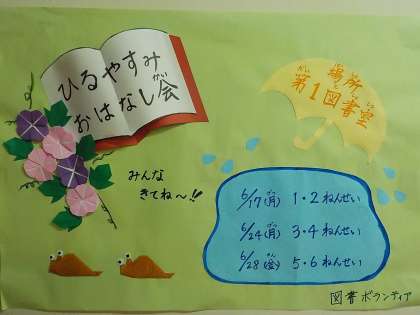 ひるやすみ
おはなし会
場所
第1図書室
みんな
きてね〜!!
6/17(月) 1・2ねんせい
6/24(月) 3・4ねんせい
6/28(金) 5・6ねんせい
図書ボランティア